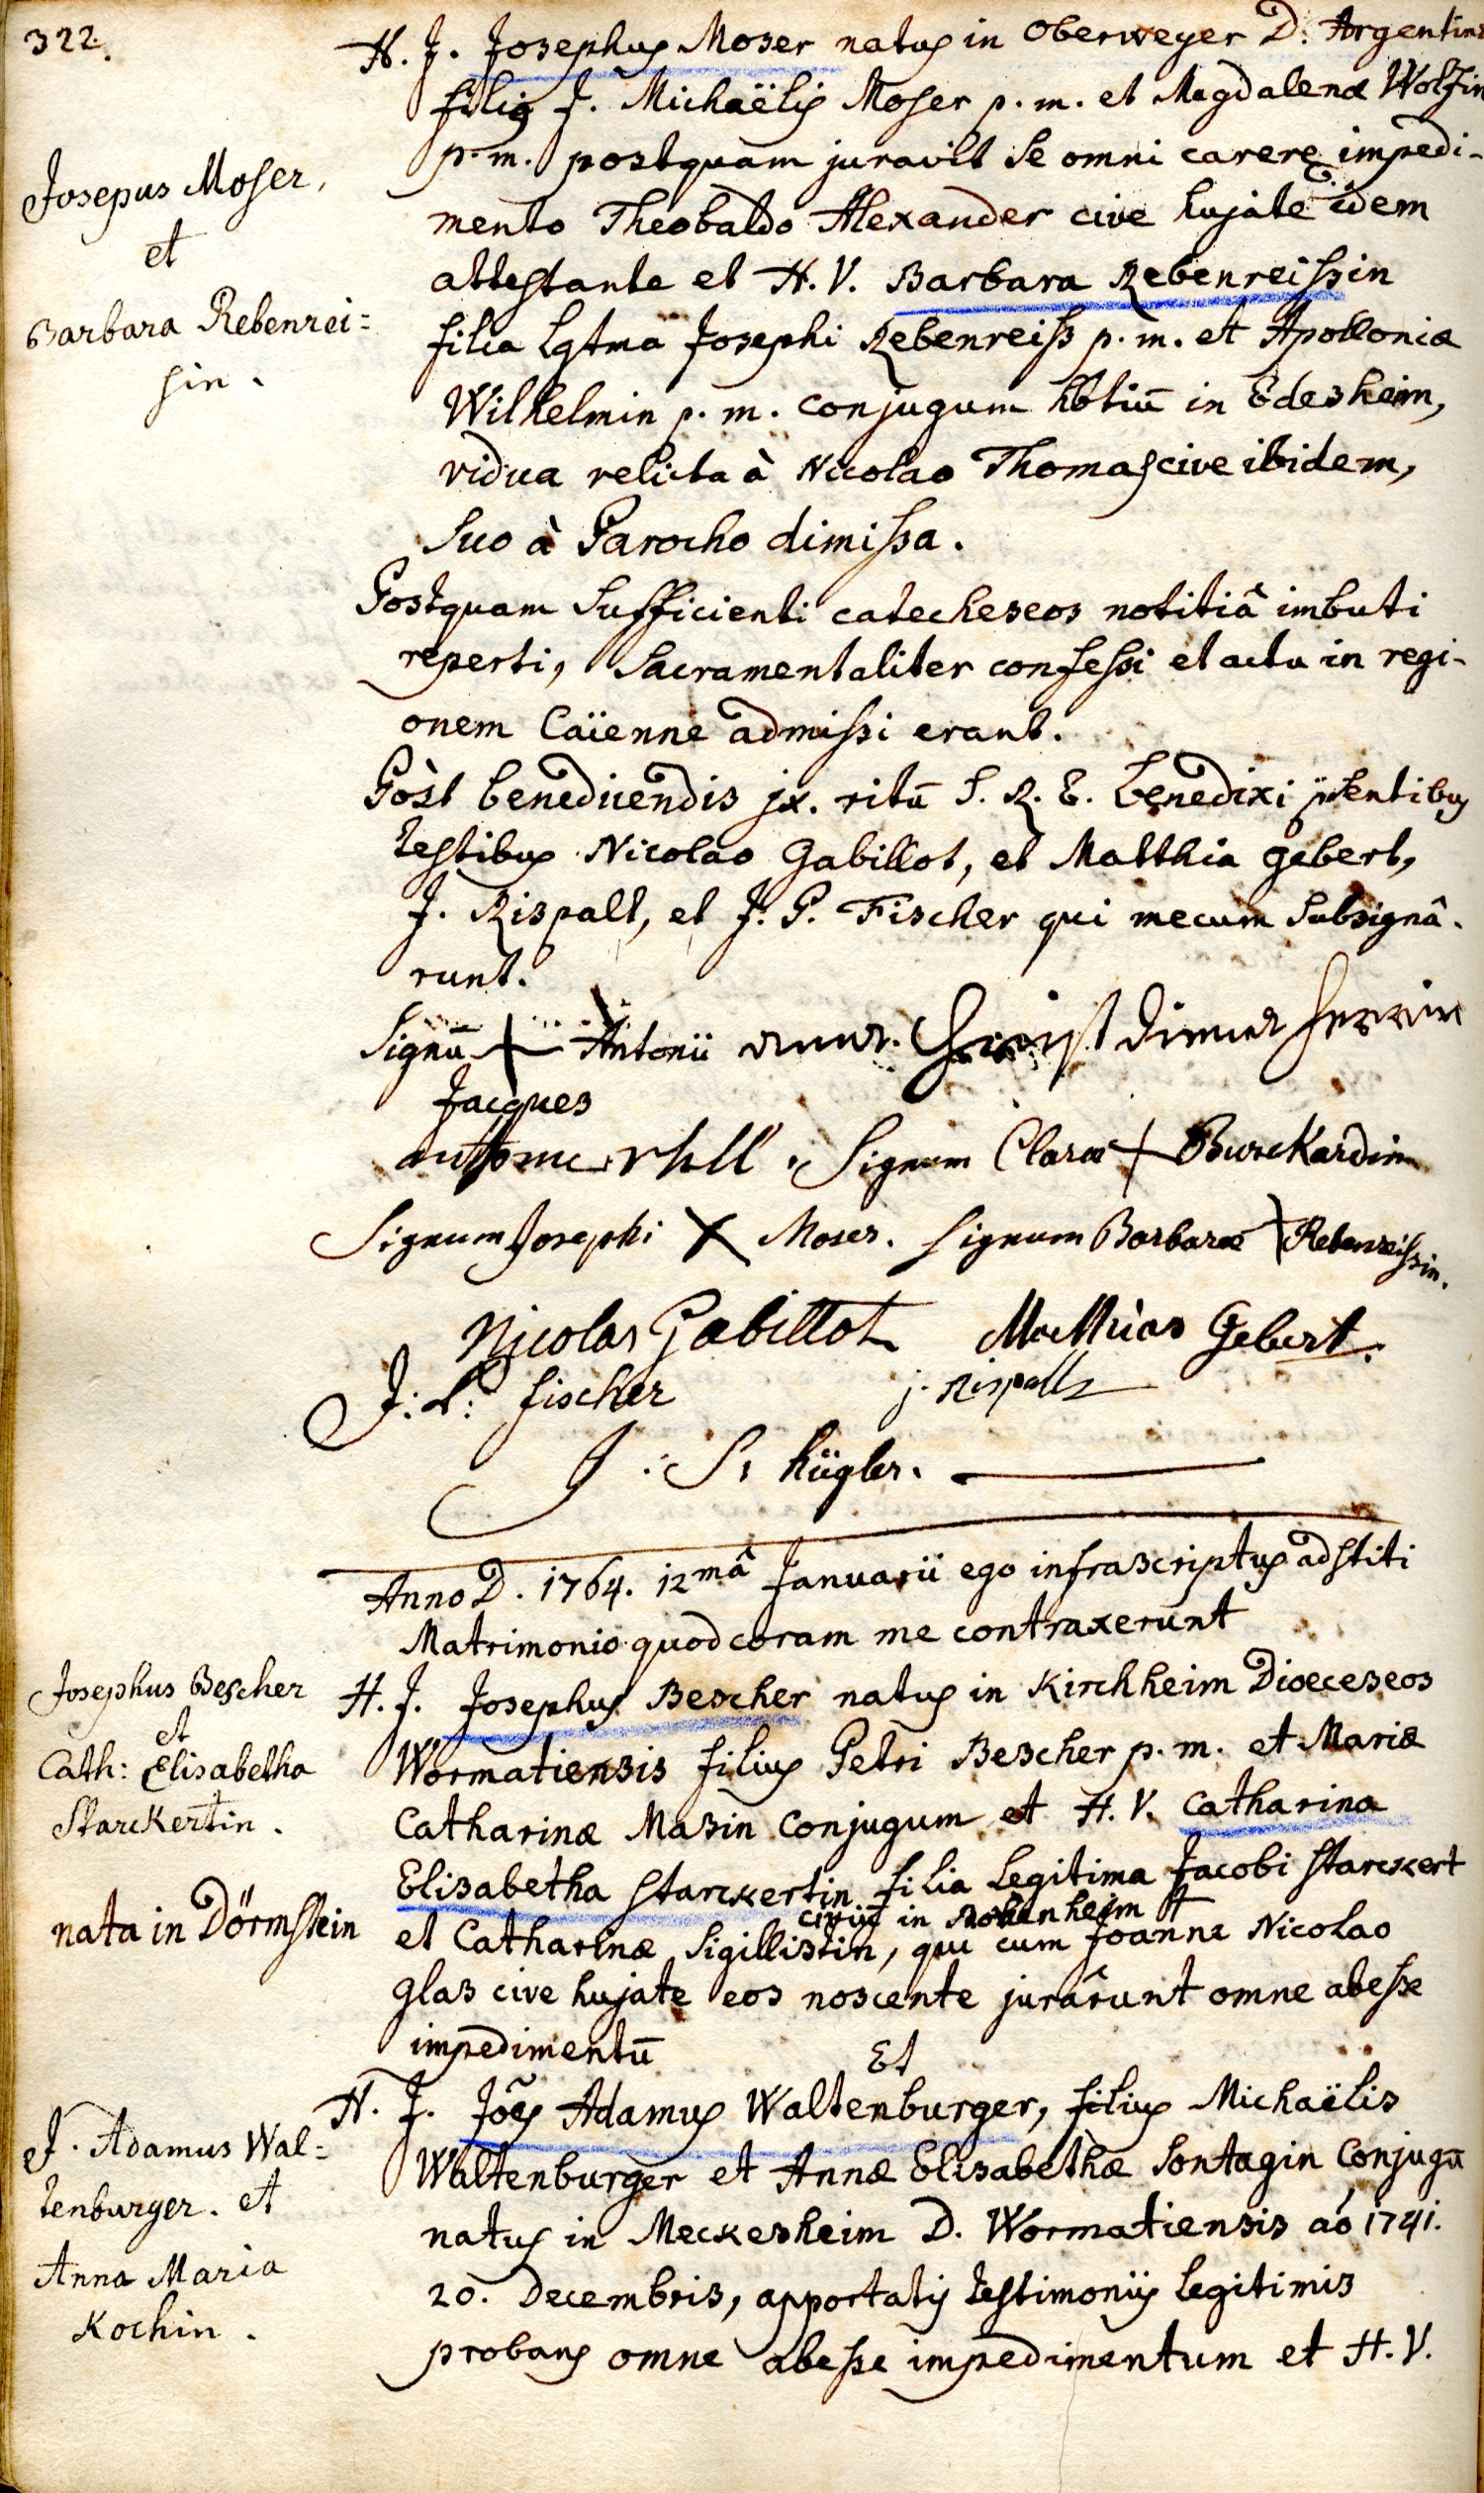 322.
H. J. Josephus Moser natus in Oberweyer D. Argentina
filius J. Michaëlis Moser p. m. et Magdalenæ Wolfin
p. m. postquam juravit se omni carere impedi-
mento Theobaldo Alexander cive hujate idem
attestante et H. V. Barbara Rebenreissin
filia lgtma Josephi Rebenreiss p. m. et Apolloniæ
Wilhelmin p. m. conjugum hbtiū in Edesheim,
vidua relicta à Nicolao Thomas cive ibidem,
suo à Parocho dimissa.
Josepus Moser,
et
Barbara Rebenrei=
sin.
Postquam sufficienti catecheseos notitiâ imbuti
reperti, sacramentaliter confessi et actu in regi-
onem Caïenne admissi erant.
Pòst benedicendis jx. ritū S. R. E. benedixi p̄sentibus
testibus Nicolao Gabillot, et Matthia Gebert,
J. Rispalt, et J. P. Fischer qui mecum subsignâ-
runt.
Signū + Antonii
Jacques
Signum Claræ + Burckardin
Signum Josephi X Moser. Signum Barbaræ + Rebenreissin.
Nicolas Gabillot Matthias Gebert.
J: P: fischer j. Rispalt
J: S: Kügler.
Anno D. 1764. 12mâ Januarii ego infrascriptus adstiti
Matrimonio quod coram me contraxerunt
H. J. Josephus Bescher natus in Kirchheim Dioeceseos
Wormatiensis filius Petri Bescher p. m. et Mariæ
Catharinæ Masin conjugum et H. V. Catharina
Elisabetha Starckertin filia legitima Jacobi Starckert
civiū in Bobenheim +
et Catharinæ Sigillistin, qui cum Joanne Nicolao
Glas cive hujate eos noscente jurârunt omne abesse
impedimentū
Josephus Bescher
et
Cath: Elisabetha
Starckertin.
nata in Dörmstein
Et
H. J. Joēs Adamus Waltenburger, filius Michaëlis
Waltenburger et Annæ Elisabethæ Sontagin conjugū
natus in Meckesheim D. Wormatiensis aó 1741.
20. Decembris, apportatis testimoniis legitimis
probans omne abesse impedimentum et H. V.
J. Adamus Wal=
tenburger. et
Anna Maria
Kochin.